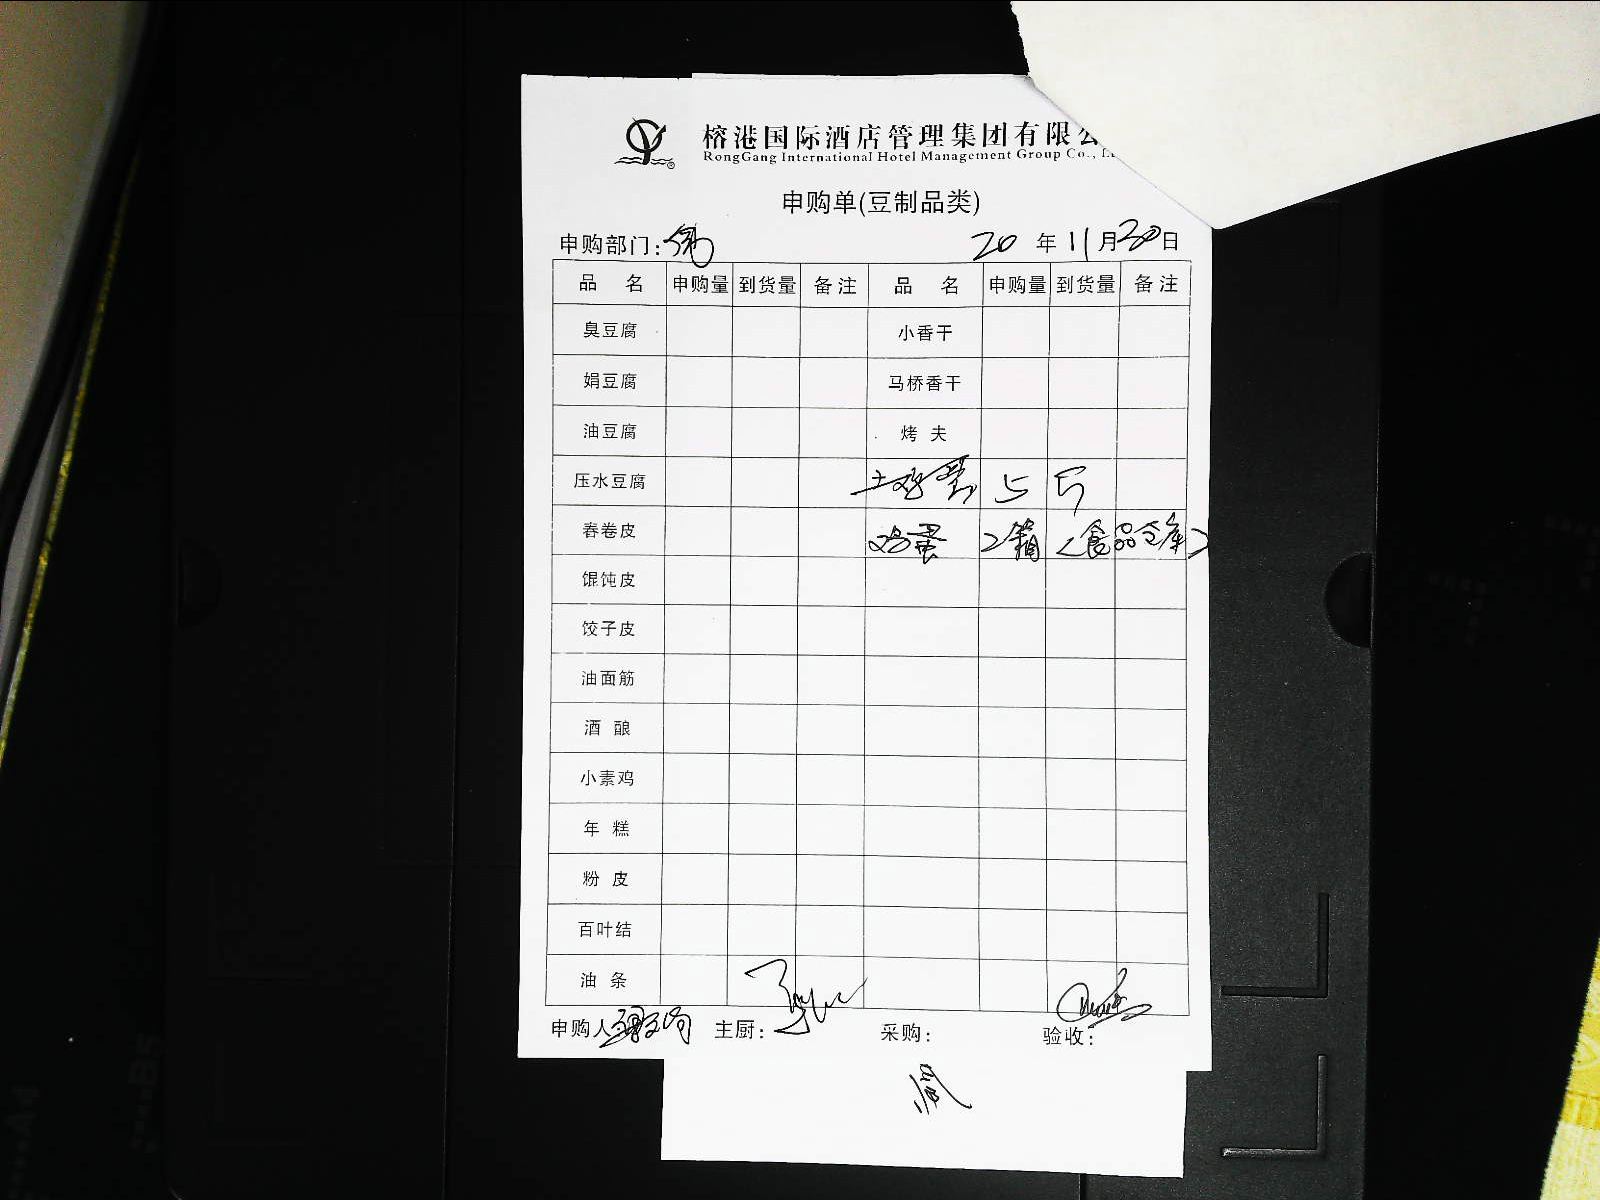 榕港国际酒店管理集团有限公
RongGang International Hotel Management Group Co., L
申购单(豆制品类)
申购部门: 20 年 11 月 30 日
品 名 申购量 到货量 备注 品 名 申购量 到货量 备注
臭豆腐 小香干
娟豆腐 马桥香干
油豆腐 烤 夫
压水豆腐 土鸡蛋 5 5
春卷皮 鸡蛋 2箱 <食品仓库>
馄饨皮
饺子皮
油面筋
酒 酿
小素鸡
年 糕
粉 皮
百叶结
油 条
申购人 主厨: 采购: 验收: